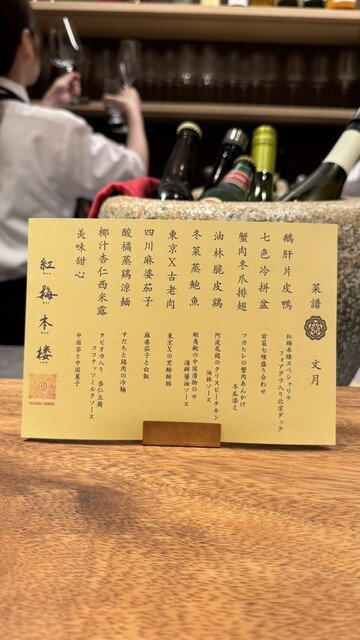 菜譜 文月
鵝肝片皮鴨
紅梅本楼スペシャリテ
フォアグラ入り北京ダック
七色冷拼盆
前菜七種盛り合わせ
蟹肉冬爪排翅
フカヒレの蟹肉あんかけ
冬瓜添え
油林脆皮鶏
阿波尾鶏のクリスピーチキン
油林ソース
冬菜蒸鮑魚
蝦夷鮑の中国漬物のせ
海鮮醤油ソース
東京X古老肉
東京Xの黒酢酢豚
四川麻婆茄子
麻婆茄子と白飯
酸橘蒸鶏涼麺
すだちと鶏肉の冷麺
椰汁杏仁西米露
タピオカ入り 杏仁豆腐
ココナッツミルクソース
美味甜心
中国茶と中国菓子
紅梅本楼